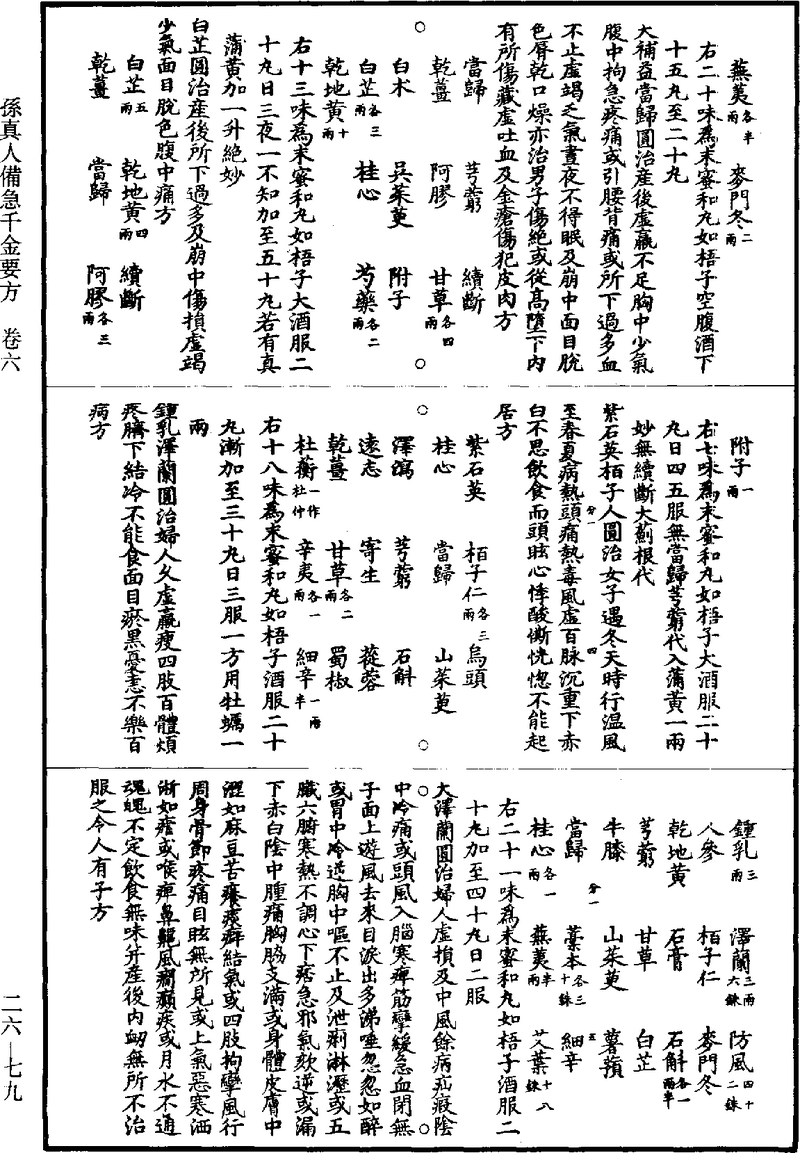 蕪荑各半兩 麥門冬二兩
右二十味爲末蜜和丸如梧子空腹酒下
十五丸至二十丸
大補益當歸圓治産後虛羸不足胸中少氣
腹中拘急疼痛或引腰背痛或所下過多血
不止虛竭乏氣晝夜不得眠及崩中面目脫
色脣乾口燥亦治男子傷絶或從高墮下內
有所傷藏虛吐血及金瘡傷犯皮肉方
當歸 芎藭 續斷
乾薑 阿膠 甘草各四兩
白朮 吳茱萸 附子
白芷各三兩 桂心 芍藥各二兩
乾地黃十兩
右十三味爲末蜜和丸如梧子大酒服二
十丸日三夜一不知加至五十丸若有真
蒲黃加一升絶妙
白芷圓治産後所下過多及崩中傷損虛竭
少氣面目脫色腹中痛方
白芷五兩 乾地黃四兩 續斷
乾薑 當歸 阿膠各三兩
附子一兩
右七味爲末蜜和丸如梧子大酒服二十
丸日四五服無當歸芎藭代入蒲黃一兩
妙無續斷大薊根代
紫石英柏子人圓治女子遇冬天時行温風
至春夏病熱頭痛熱毒風虛百脉沉重下赤
白不思飲食而頭眩心悸酸㾷恍惚不能起
居方
紫石英 柏子仁各三兩 烏頭
桂心 當歸 山茱萸
澤瀉 芎藭 石斛
遠志 寄生 蓯蓉
乾薑 甘草各二兩 蜀椒
杜蘅一作杜仲 辛夷各一兩 細辛一兩半
右十八味爲末蜜和丸如梧子酒服二十
丸漸加至三十丸日三服一方用牡蠣一
兩
鍾乳澤蘭圓治婦人久虛羸瘦四肢百體煩
疼臍下結冷不能食面目瘀黑憂恚不樂百
病方
鍾乳三兩 澤蘭三兩六銖 防風四十二銖
人參 柏子仁 麥門冬
乾地黃 石膏 石斛各一兩半
芎藭 甘草 白芷
牛膝 山茱萸 薯蕷
當歸 藁本各三十銖 細辛
桂心各一兩 蕪荑半兩 艾葉十八銖
右二十一味爲末蜜和丸如梧子酒服二
十丸加至四十丸日二服
大澤蘭圓治婦人虛損及中風餘病疝瘕陰
中冷痛或頭風入腦寒痺筋攣緩急血閉無
子面上遊風去來目淚出多涕唾忽忽如醉
或胃中冷逆胸中嘔不止及泄痢淋瀝或五
臟六腑寒熱不調心下痞急邪氣欬逆或漏
下赤白陰中腫痛胸脇支滿或身體皮膚中
澀如麻豆苦癢痰癖結氣或四肢拘攣風行
周身骨節疼痛目眩無所見或上氣惡寒洒
淅如瘧或喉痺鼻齆風癎癲疾或月水不通
魂魄不定飲食無味并産後內衂無所不治
服之令人有子方
孫真人備急千金要方 卷六
二六—七九